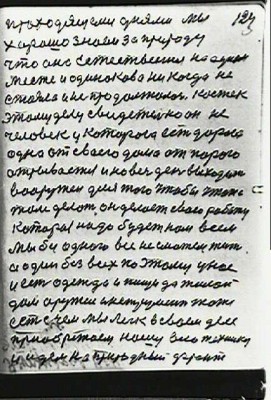 проходящими днями мы 123
хорошо знаем за природу
что она естественная на одном
месте и одинаково никогда не
стояла и не продолжалась. К
этому делу свидетель он не
человек у которого есть дорога
одна от своего дома от порога
открывается и на вечер день выходит
вооружен для того чтобы что
там делать, он делает свою работу
которая надо будет нам всем
мы без одного все не сможем жить
а один без всех поэтому у нас
и есть одежда и пища да жилой
дом оружие инструмент тоже
есть с чем мы лезем в своем деле
приобретаем нашу всю технику
и идем на природный фронт